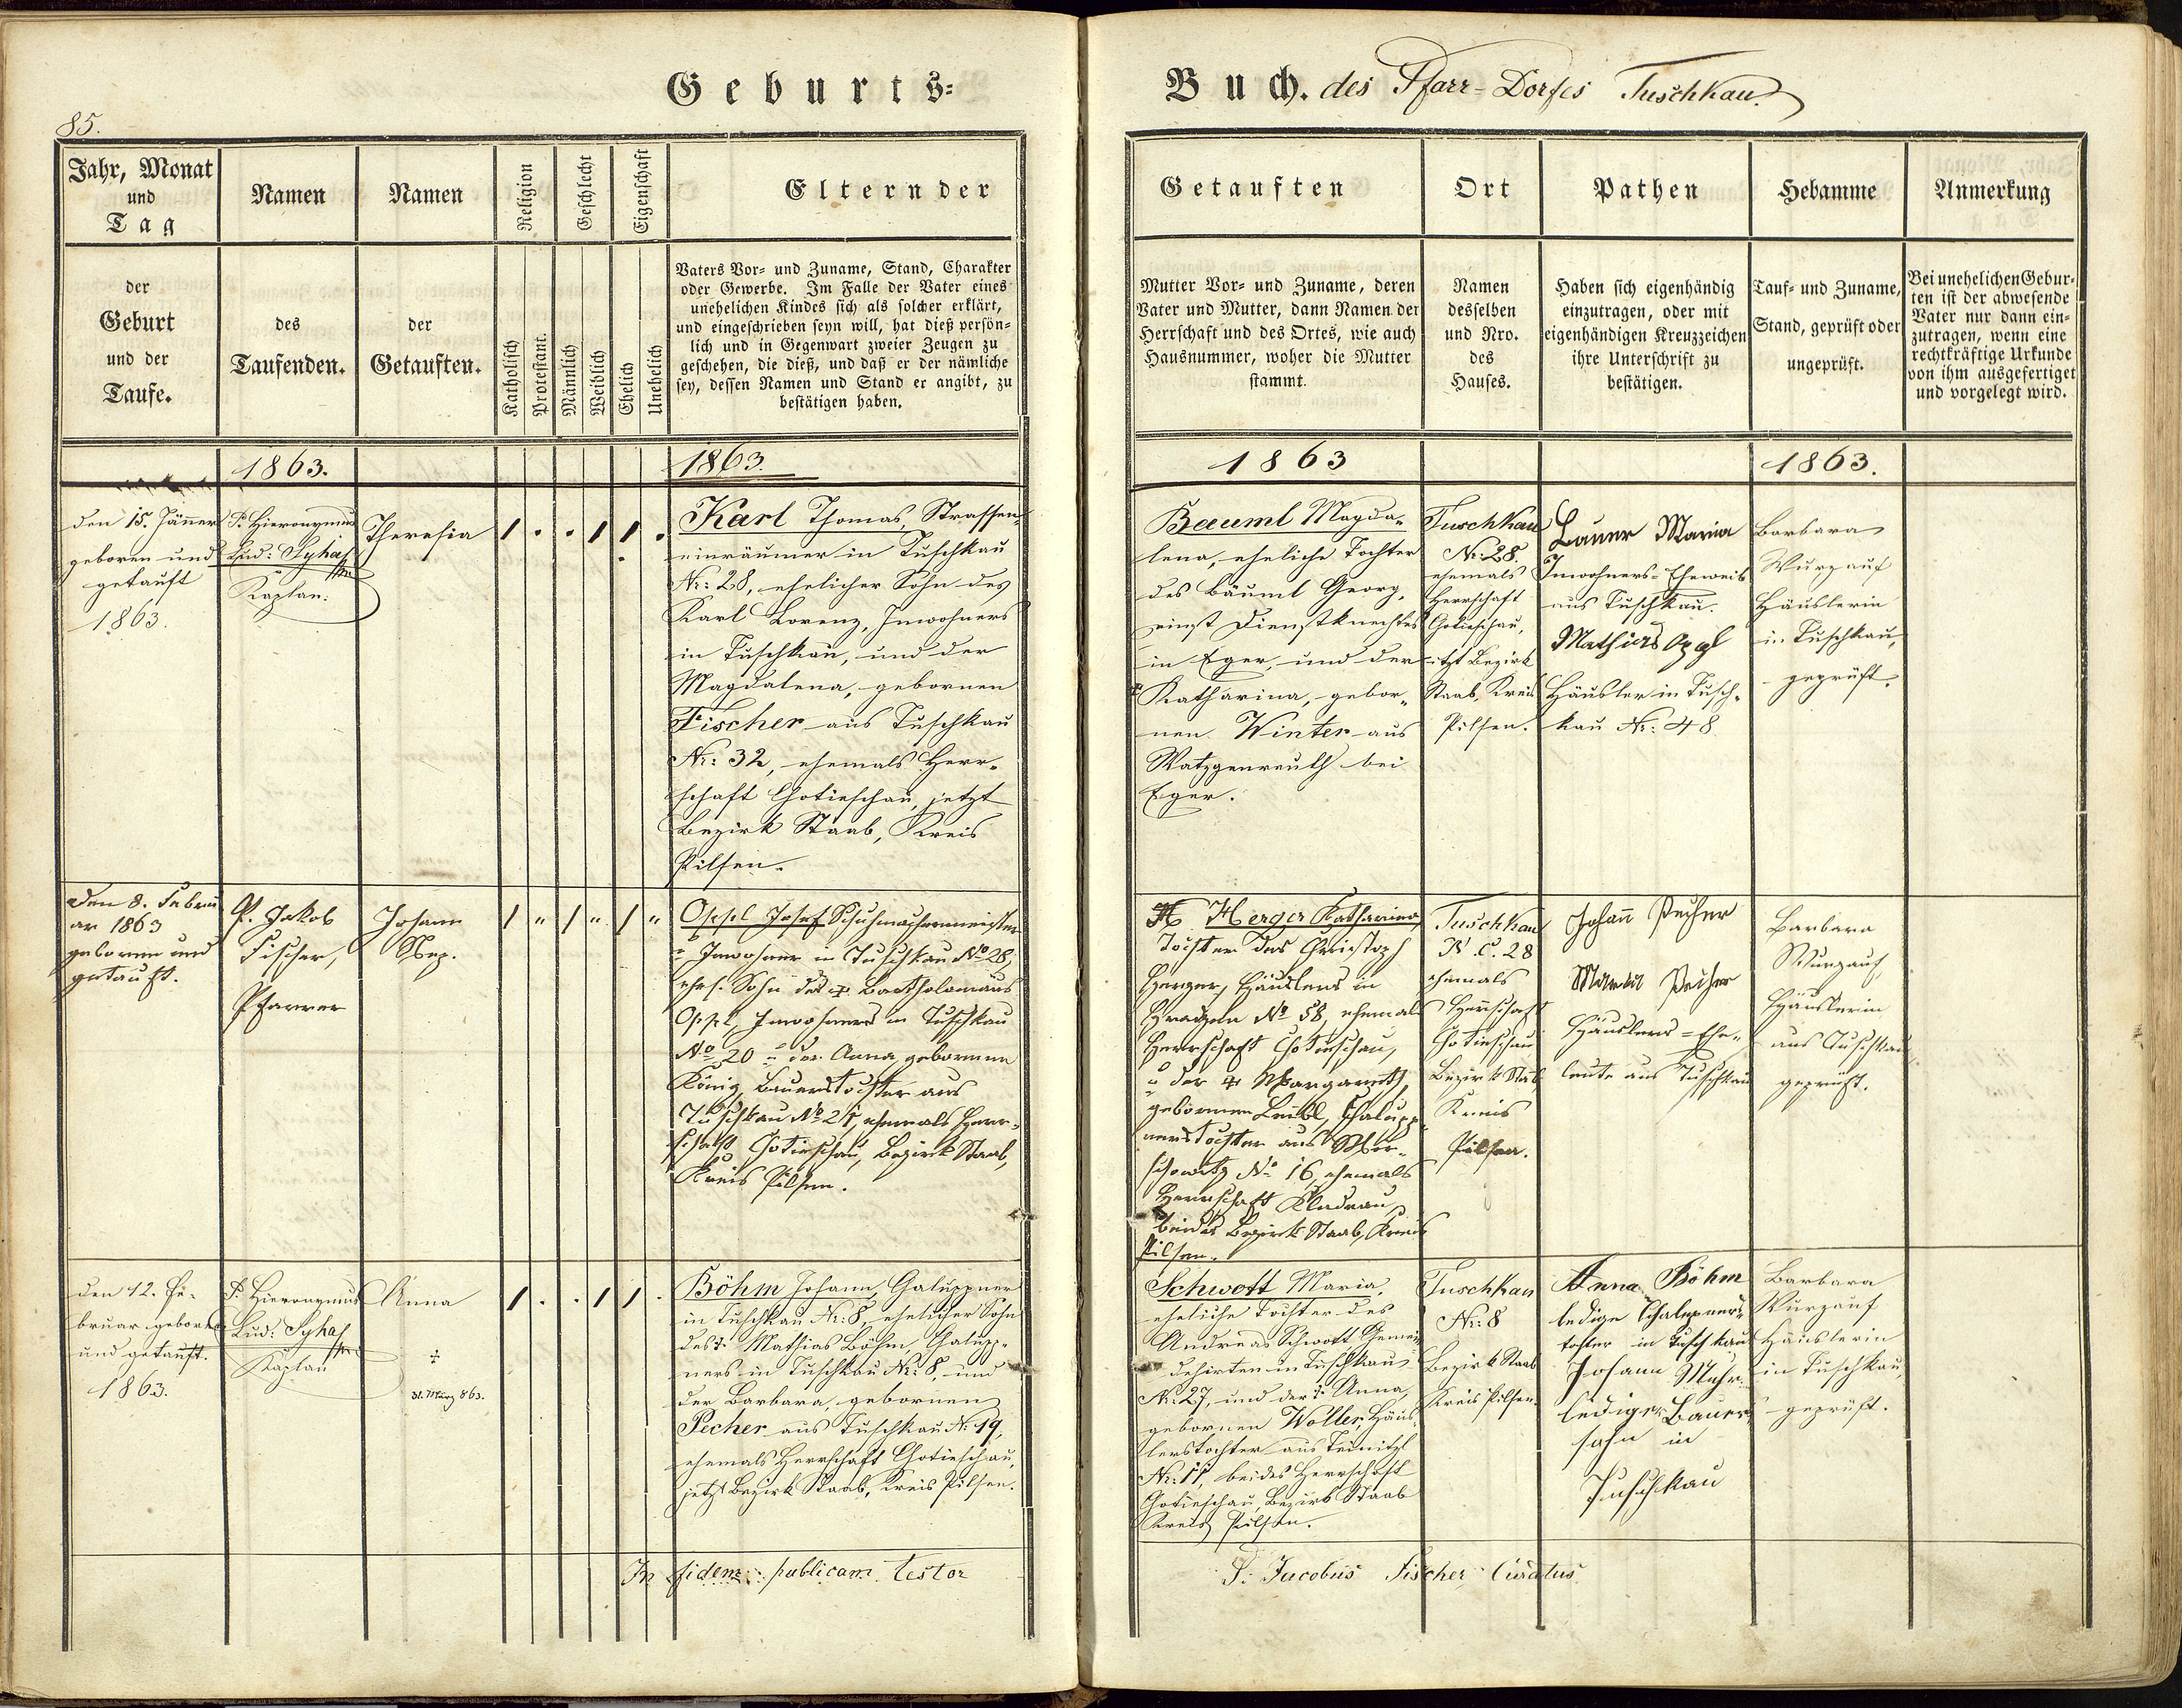 Geburts=
Buch. des Pfarr-Dorfes Tuschkau.
85.
Jahr, Monat
und
Tag
der
Geburt
und der
Taufe.
Namen
des
Taufenden.
Namen
der
Getauften.
Religion
Katholisch
Protestant.
Geschlecht
Männlich
Weiblich
Eigenschaft
Ehelich
Unehelich
Eltern der
Vaters Vor- und Zuname, Stand, Charakter
oder Gewerbe. Im Falle der Vater eines
unehelichen Kindes sich als solcher erklärt,
und eingeschrieben seyn will, hat dieß persön-
lich und in Gegenwart zweier Zeugen zu
geschehen, die dieß, und daß er der nämliche
sey, dessen Namen und Stand er angibt, zu
bestätigen haben.
Getauften
Mutter Vor- und Zuname, deren
Vater und Mutter, dann Namen der
Herrschaft und des Ortes, wie auch
Hausnummer, woher die Mutter
stammt.
Ort
Namen
desselben
und Nro.
des
Hauses.
Pathen
Haben sich eigenhändig
einzutragen, oder mit
eigenhändigen Kreuzzeichen
ihre Unterschrift zu
bestätigen.
Hebamme
Tauf- und Zuname,
Stand, geprüft oder
ungeprüft.
Anmerkung
Bei unehelichen Gebur-
ten ist der abwesende
Vater nur dann ein-
zutragen, wenn eine
rechtkräftige Urkunde
von ihm ausgefertiget
und vorgelegt wird.
1863.
1863.
1863
1863.
den 15. Jänner
geboren und
getauft
1863.
P. Hieronymus
Lud: Syhaß
Kaplan.
Theresia
Karl Thomas, Strassen-
einräumer in Tuschkau
Nr: 28, ehelicher Sohn des
Karl Lorenz, Inwohners
in Tuschkau, und der
Magdalena, gebornen
Fischer aus Tuschkau
Nr: 32, ehemals Herr-
schaft Chotieschau, jetzt
Bezirk Staab, Kreis
Pilsen.
Baeuml Magda-
lena, eheliche Tochter
des Bäuml Georg,
einst Dienstknechtes
in Eger, und der
Katharina, gebor-
nen Winter aus
Watzgenreuth bei
Eger.
Tuschkau
Nr: 28.
ehemals
Herrschaft
Chotieschau,
itzt Bezirk
Staab, Kreis
Pilsen.
Bauer Maria
Inwohners-Eheweib
aus Tuschkau.
Mathias Oppl
Häusler in Tusch-
kau Nr: 48
Barbara
Wurzauf
Häuslerin
in Tuschkau,
geprüft.
Den 8. Febru
ar 1863
geboren und
getauft.
P. Jakob
Fischer,
Pfarrer
Johann
Nep.
Oppl Josef Schuhmachermeister
u Inwohner in Tuschkau No 28,
ehel. Sohn des Bartholomäus
Oppl, Inwohners in Tuschkau
No 20 u der Anna gebornen
König Bauerstochter aus
Tuschkau No 21, ehemals Herr-
schaft Chotieschau, Bezirk Staab,
Kreis Pilsen.
Herger Katharina
Tochter des Christoph
Herger, Häuslers in
Hradzen No 58, ehemals
Herrschaft Chotieschau,
u der Margareth,
gebornen Leibl, Chalupp-
nerstochter aus
No 16, ehemals
Herrschaft Kladrau,
beides Bezirk Staab, Kreis
Pilsen.
Tuschkau
N. C. 28
ehemals
Herrschaft
Chotieschau
Bezirk Staab
Kreis
Pilsen.
Johann Pecher
Maria Pecher
Häuslers-Ehe-
leute aus Tuschkau
Barbara
Wurzauf,
Häuslerin
aus Tuschkau
geprüft.
den 12. Fe-
bruar geboren
und getauft.
1863.
P. Hieronymus
Lud: Syhaß
Kaplan
Anna
31. März 863.
Böhm Johann, Chaluppner
in Tuschkau Nr: 8, ehelicher Sohn
des Mathias Böhm, Chalupp-
ners in Tuschkau Nr: 8, und
der Barbara, gebornen
Pecher aus Tuschkau Nr: 19,
ehemals Herrschaft Chotieschau,
jetzt Bezirk Staab, Kreis Pilsen.
Schwott Maria,
eheliche Tochter des
Andreas Schwott Gemein-
dehirten in Tuschkau
Nr: 27, und der Anna,
gebornen Woller, Häus-
lerstochter aus
Nr: 11, beides Herrschaft
Chotieschau, Bezirk Staab
Kreis Pilsen.
Tuschkau
Nr: 8
Bezirk Staab
Kreis Pilsen.
Anna Böhm
ledige Chaluppners-
tochter in Tuschkau
Johann
lediger Bauers-
sohn in
Tuschkau
Barbara
Wurzauf
Häuslerin
in Tuschkau,
geprüft.
In fidem publicam testor
P. Jacobus Fischer, Curatus